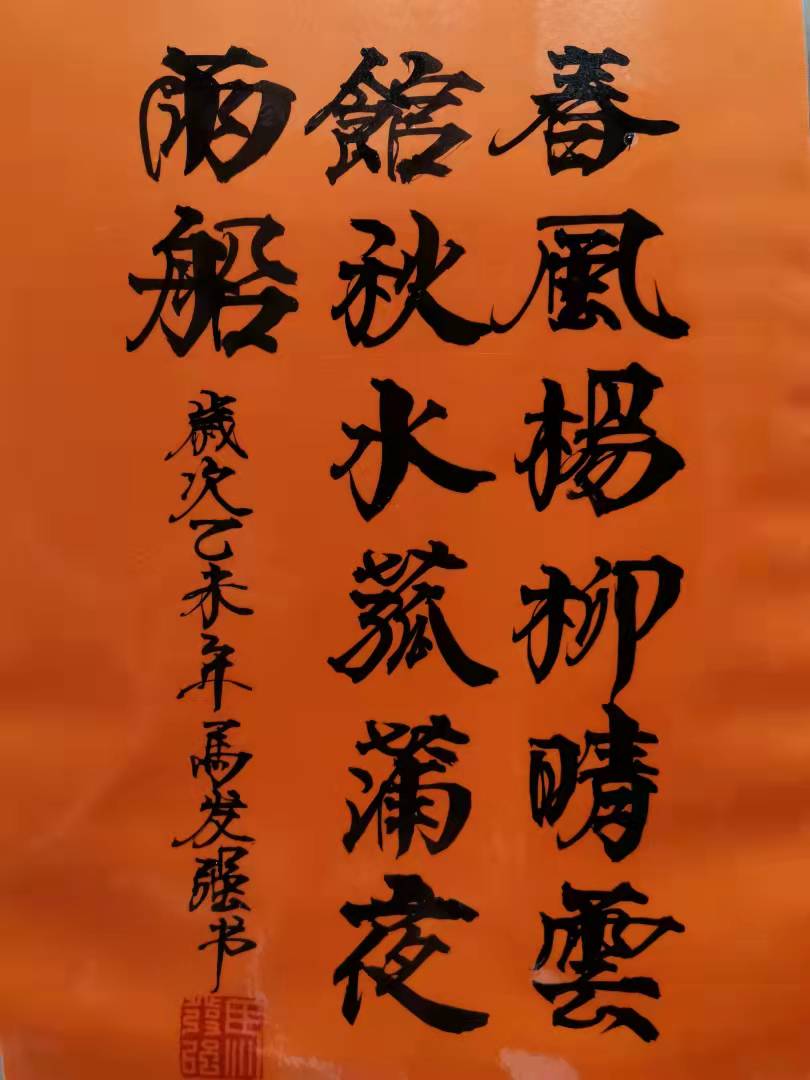 春風楊柳晴雲
館秋水菰蒲夜
雨船
歲次乙未年馬发强书